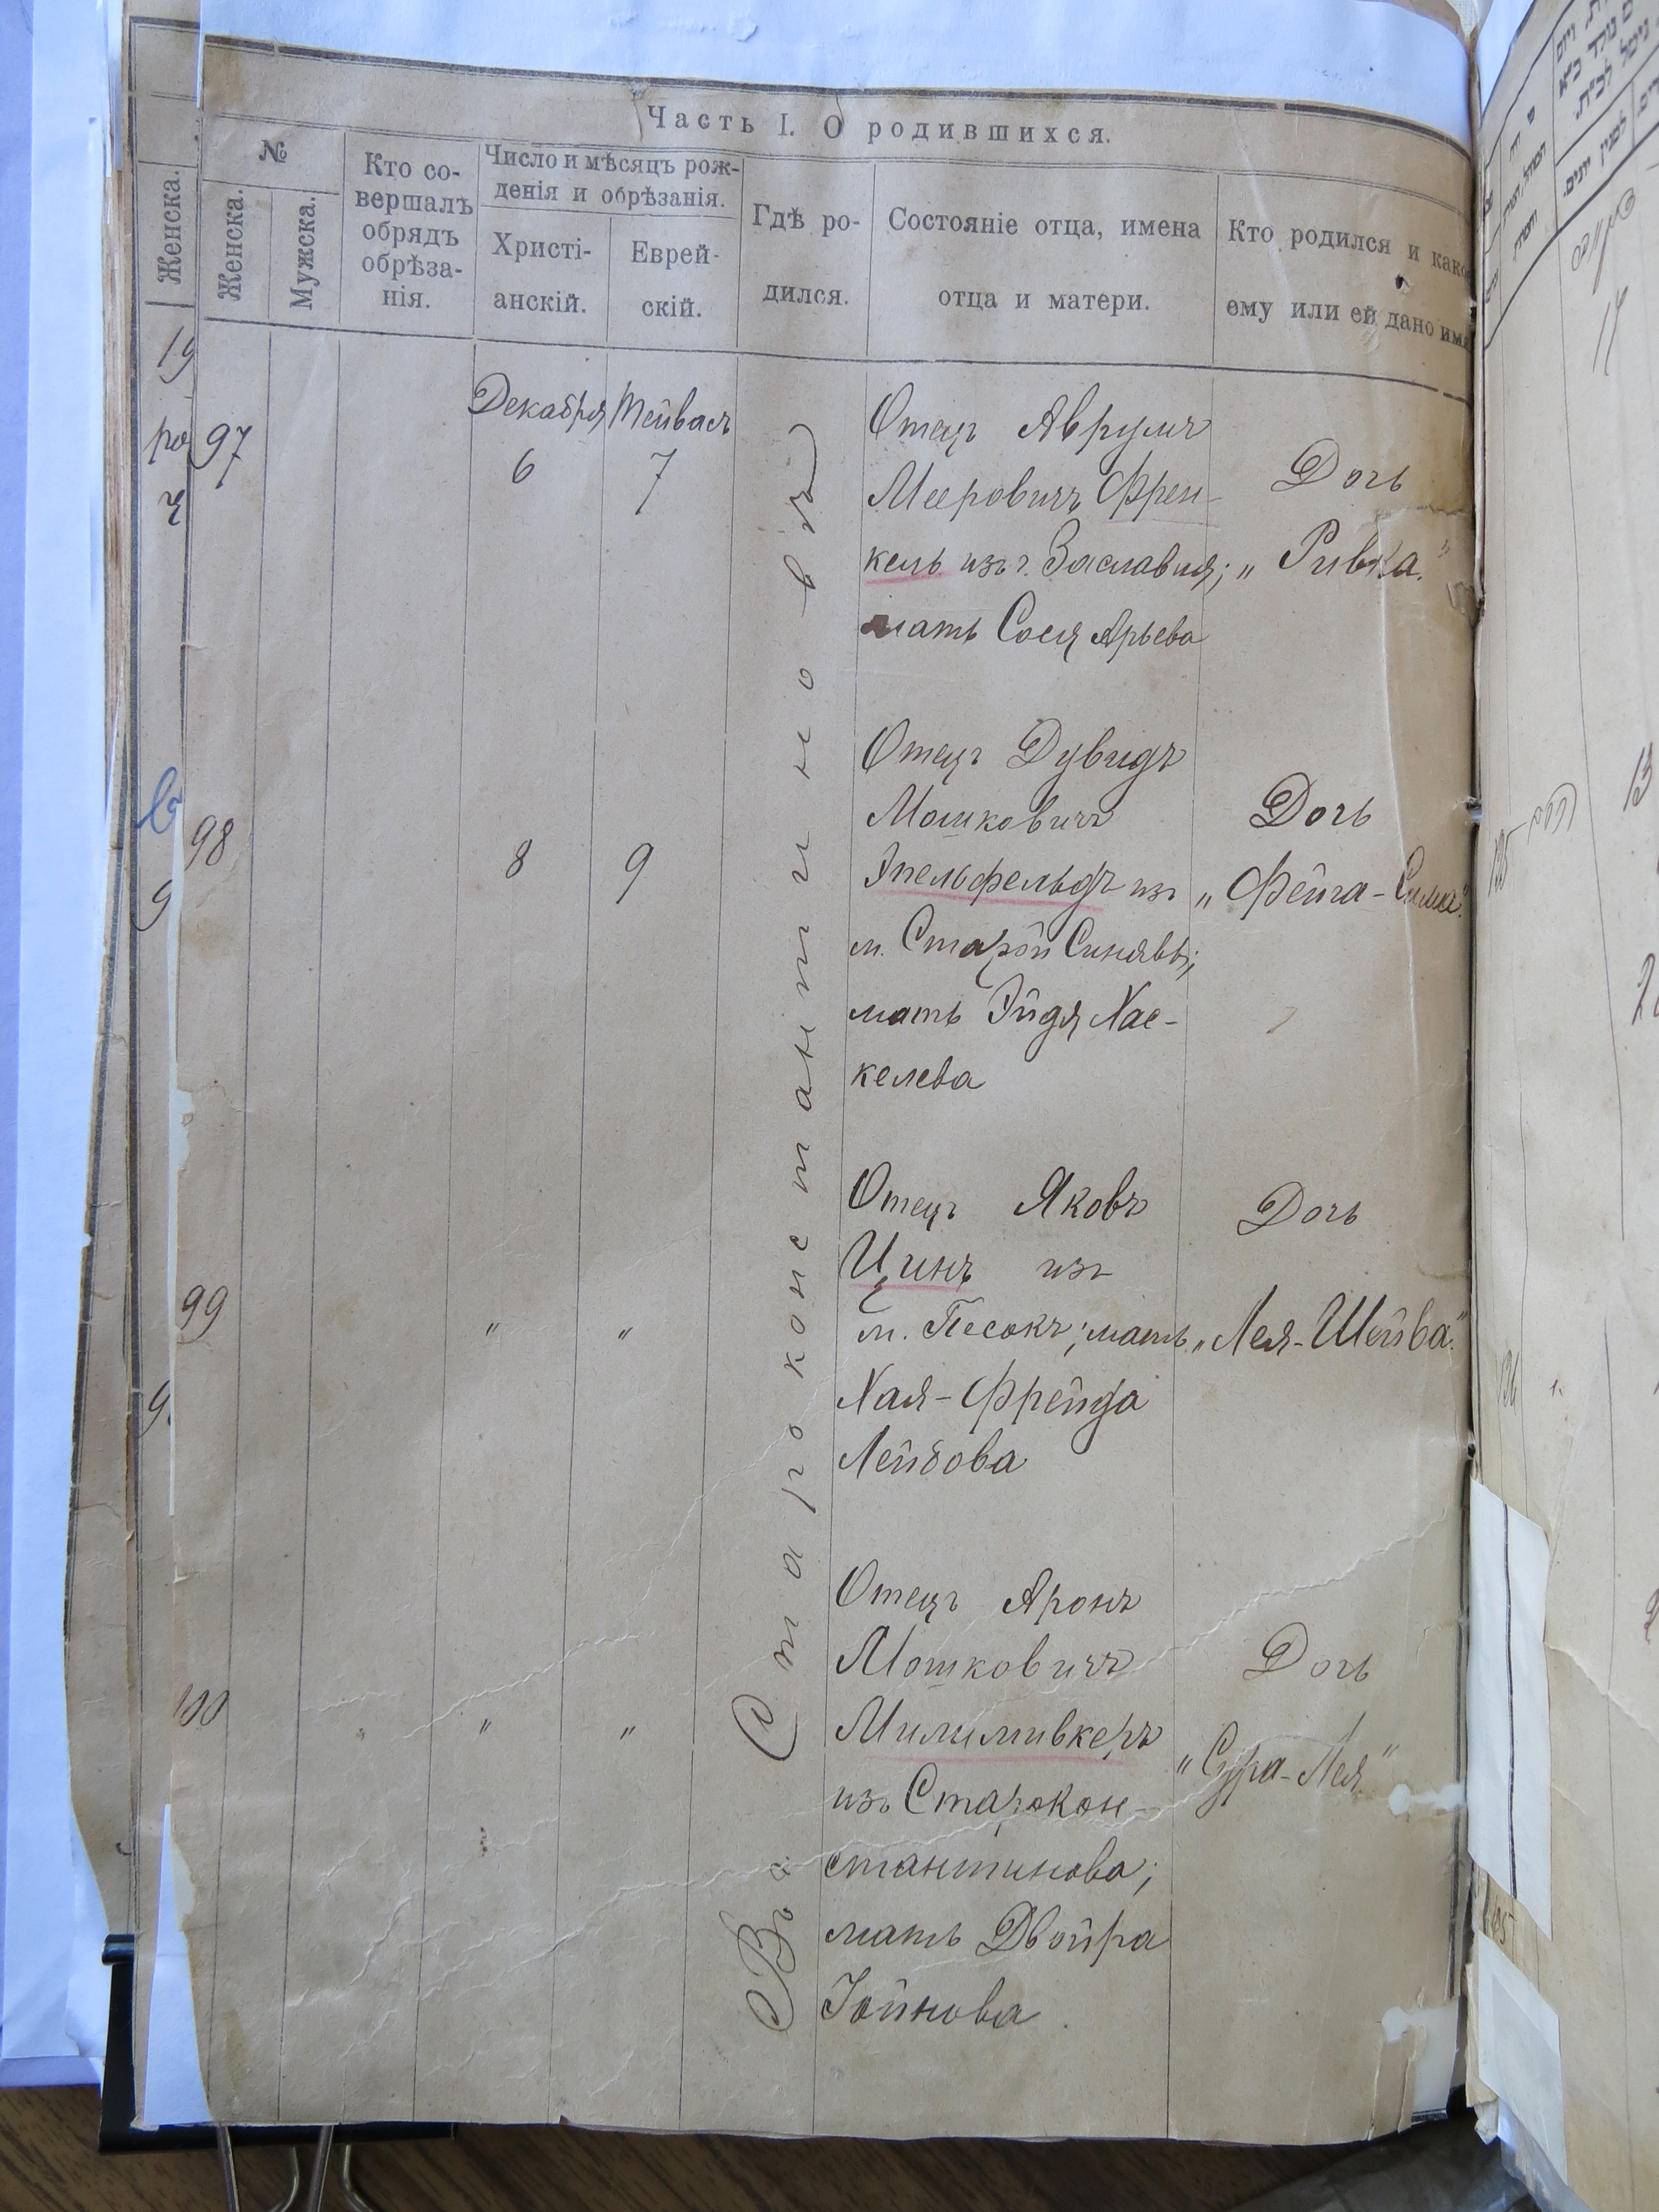 Часть I. О родившихся.
№
Женска.
Женска.
Мужска.
Кто со-
вершалъ
обрядъ
обрѣза-
нія.
Число и мѣсяцъ рож-
денія и обрѣзанія.
Христі-
анскій.
Еврей-
скій.
Гдѣ ро-
дился.
Состояніе отца, имена
отца и матери.
Кто родился и како
ему или ей дано имя
Въ Староконстантиновѣ
97
Декабря
6
Тейвасъ
7
Отецъ Аврумъ
Мееровичъ Френ-
кель изъ г. Заславля;
мать Сося Арьева
Дочь
„Ривка."
98
8
9
Отецъ Дувидъ
Мошковичъ
Эпельфельдъ изъ
м. Старой Синявы;
мать Эйдя Хас-
келева
Дочь
„Фейга-Сима."
99
"
"
Отецъ Яковъ
Цинъ изъ
м. Песокъ; мать
Хая-Фрейда
Лейбова
Дочь
„Лея-Шейва."
100
"
"
Отецъ Аронъ
Мошковичъ
Милиливкеръ
изъ Старокон-
стантинова;
мать Двойра
Іойнова
Дочь
„Сура-Лея"